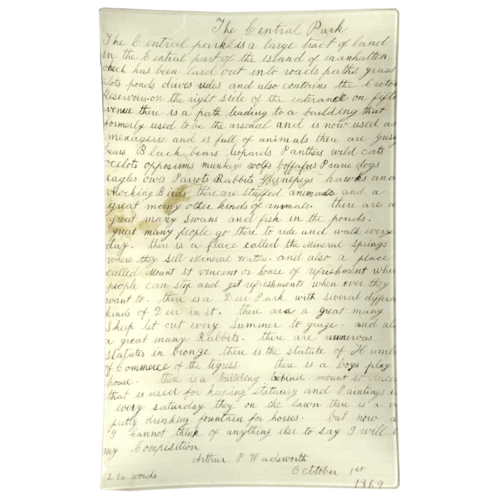 The Central Park
The Central park is a large tract of land
in the Central part of the island of manhattan
which has been laid out into roads paths grass
plots ponds drives rides and also contains the Croton
Reservoir on the right side of the entrance on fifth
avenue there is a path leading to a building that
formerly used to be the arsenal and is now used as
menagerie and is full of animals there are grisly
bears Black bears leopards Panthers wild cats
ocelots opposiums monkeys wolfs boffalos Prarie dogs
eagles owls Parrots Rabbits Guinepegs hawks and
Mocking Birds there are stuffed animals and a
great many other kinds of animals. there are a
great many Swans and fish in the ponds.
great many people go there to ride and walk every
day. there is a place called the Mineral Springs
where they sell Mineral Water. and also a place
called Mount St Vincent or house of refreshment where
people can stop and get refreshments when ever they
want to. there is a Deer Park with several
kinds of Deer in it. there are a great many
sheep let out every Summer to graze. and also
a great many Rabbits. there are numerous
statutes in bronze there is the statute of
of Commerce of the tigress. there is a Boys play
house. there is a building behind mount st
that is used for keeping statuary and Paintings
every saturday they on the lawn there is a
pretty drinking fountain for horses. but now
I cannot think of anything else to say I will
my Composition
Arthur P Wadsworth
October 1st
1869
words